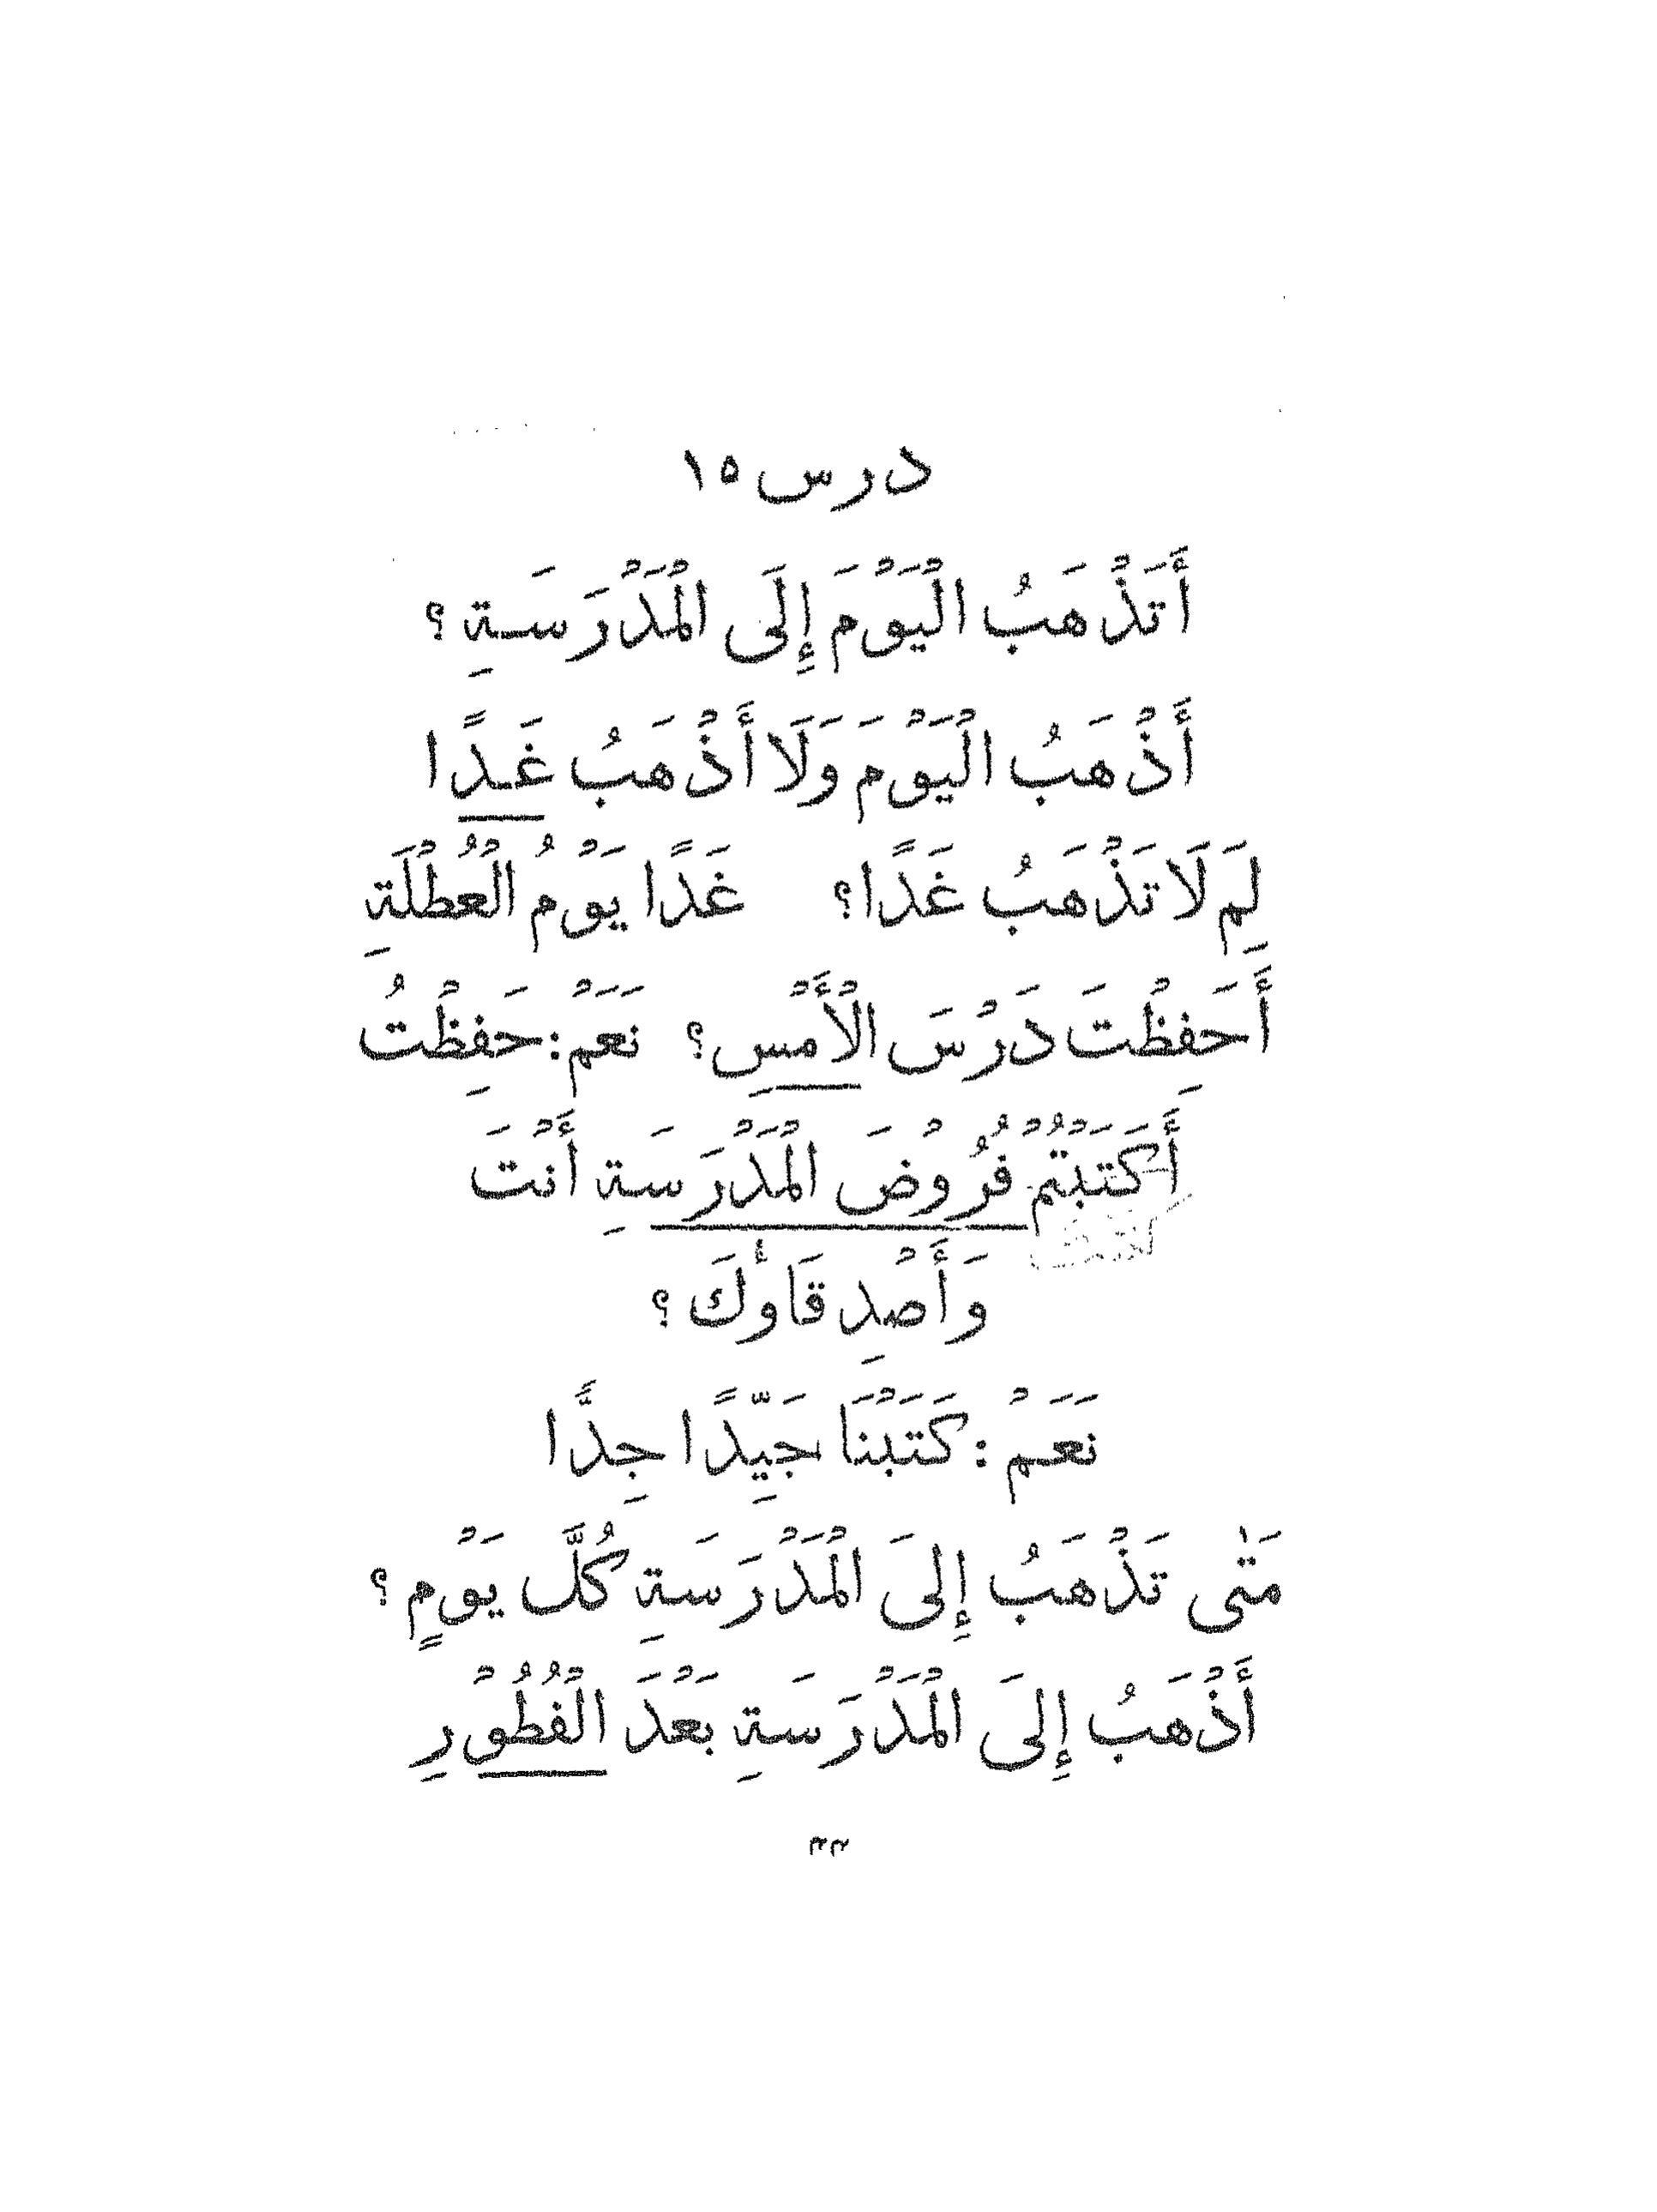 درس ١٥
أَتَذْهَبُ الْيَوْمَ إِلَى الْمَدْرَسَةِ؟
أَذْهَبُ الْيَوْمَ وَلَا أَذْهَبُ غَدًا
لِمَ لَا تَذْهَبُ غَدًا؟ غَدًا يَوْمُ الْعُطْلَةِ
أَحَفِظْتَ دَرْسَ الْأَمْسِ؟ نَعَمْ: حَفِظْتُ
أَكَتَبْتُمْ فُرُوْضَ الْمَدْرَسَةِ أَنْتَ
وَأَصْدِقَاؤُكَ؟
نَعَمْ: كَتَبْنَا جَيِّدًا جِدًّا
مَتٰى تَذْهَبُ إِلىَ الْمَدْرَسَةِ كُلَّ يَوْمٍ؟
أَذْهَبُ إِلىَ الْمَدْرَسَةِ بَعْدَ الْفُطُوْرِ